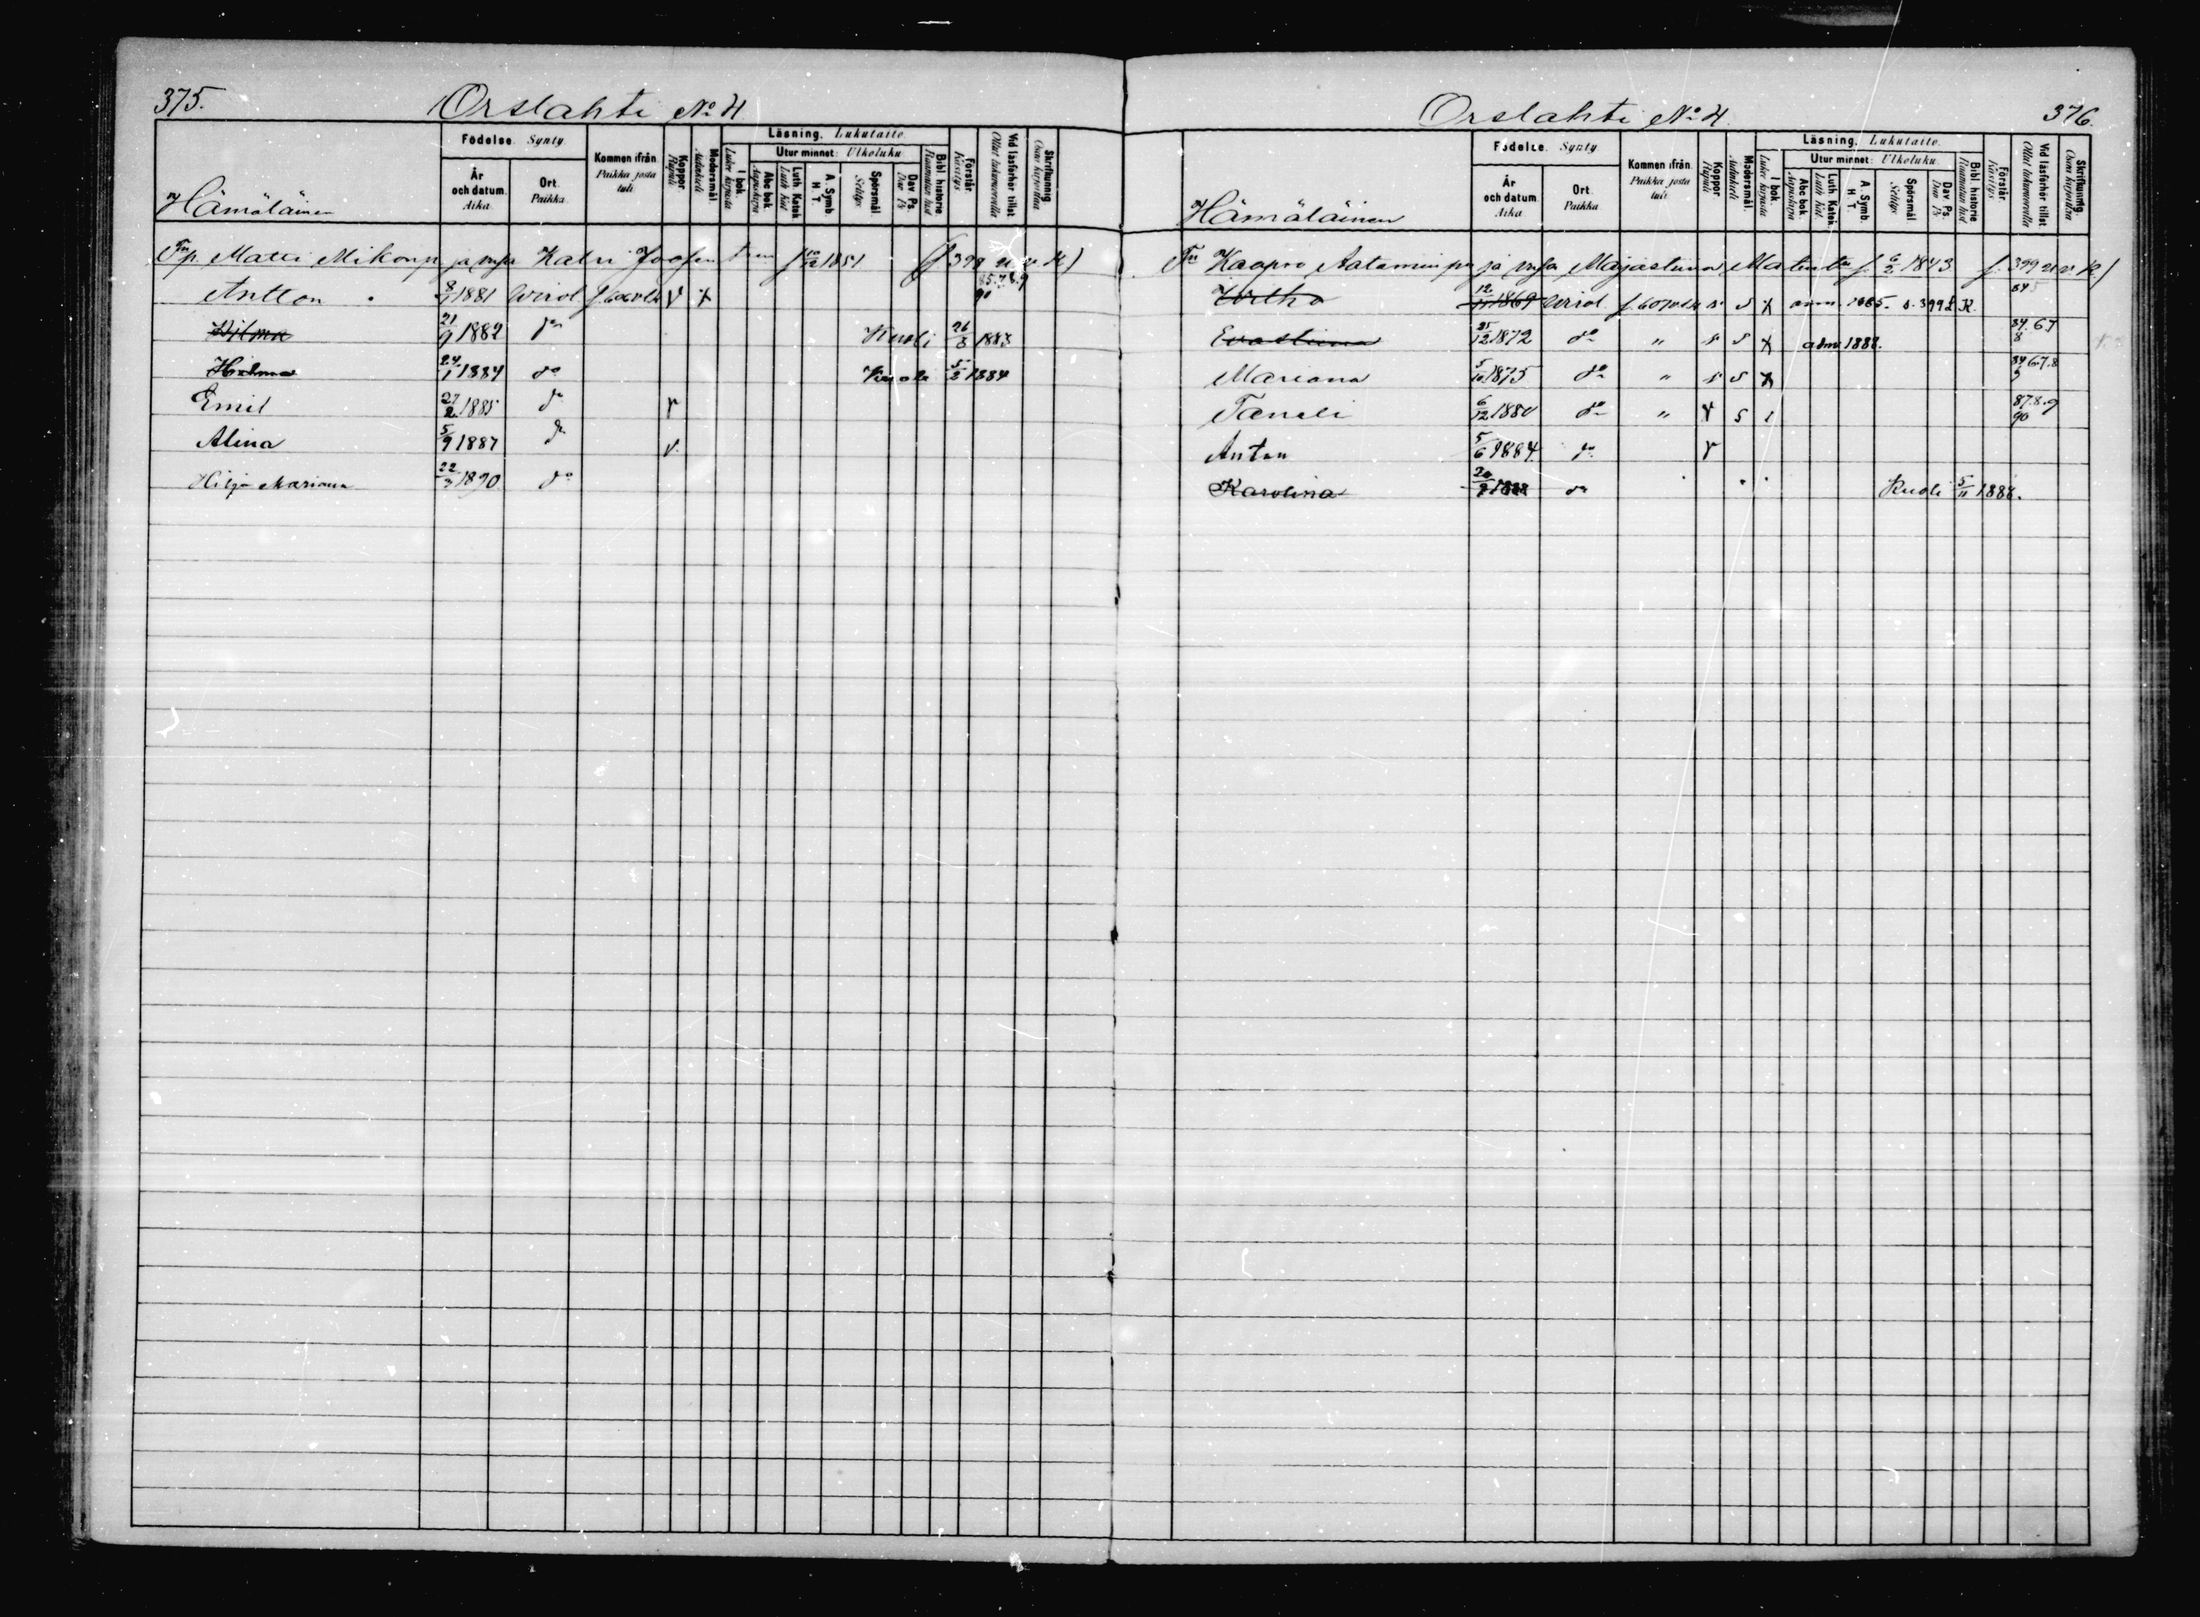 375.
Orslahti No 4.
Födelse. Synty
År och datum. Aika.
Ort. Paikka.
Kommen ifrån. Paikka josta tuli.
Koppor Rupuli
Modersmål. Äidinkieli
Läsning. Lukutaito.
I bok. Lukee kirjasta
Utur minnet: Ulkoluku.
Abc bok. Aapiskirja
Luth Katek. Luth Kat
A. Symb. H T.
Spörsmål Selitys
Dav. Ps. Dav Ps
Bibl historie Raamatun hist
Förstår. Käsitys.
Vid läsförhör tillst Ollut lukuvuorolla
Skriftkunnig. Osaa kirjoittaa
Hämäläinen
Tp. Matti Mikonp. ja vmsa Katri Joosen 10/12 1851 (f 398 K)
Antton 8/1 1881 Wirol. 85.7.8.9 90
Wilma 21/9 1882 do Kuoli 26/3 1883
Hilma 24/1 1884 do Kuoli 5/2 1884
Emil 27/2 1885 do
Alina 5/9 1887 do
Hilja Mariana 22/3 1890 do
Orslahti No 4.
376.
Födelse. Synty
År och datum. Aika
Ort. Paikka.
Kommen ifrån. Paikka josta tuli.
Koppor Rupuli
Modersmål. Äidinkieli
Läsning. Lukutaito.
I bok. Lukee kirjasta
Utur minnet: Ulkoluku.
Abc bok. Aapiskirja
Luth Katek. Luth Kat
A. Symb. H T.
Spörsmål Selitys
Dav. Ps. Dav Ps
Bibl historie Raamatun hist
Förstår. Käsitys.
Vid läsförhör tillst Ollut lukuvuorolla
Skriftkunnig. Osaa kirjoittaa
Hämäläinen
Kaapro Aataminp. ja Maijastiina Matint. f. 6/2 1843 f. 399 K)
12/11 1869 Wirol. f. 607 s. S x 1885. s. 399 K. 84 5
Evastiina 21/12 1872 do " s S x adm. 1888. 84.6.7 8
Mariana 5/10 1875 do " s S x 84 6.7.8 9
Taneli 6/12 1880 do " S 87.8.9 90
Anton 5/6 1884 do
Karolina 1888 do Kuoli 5/11 1888.